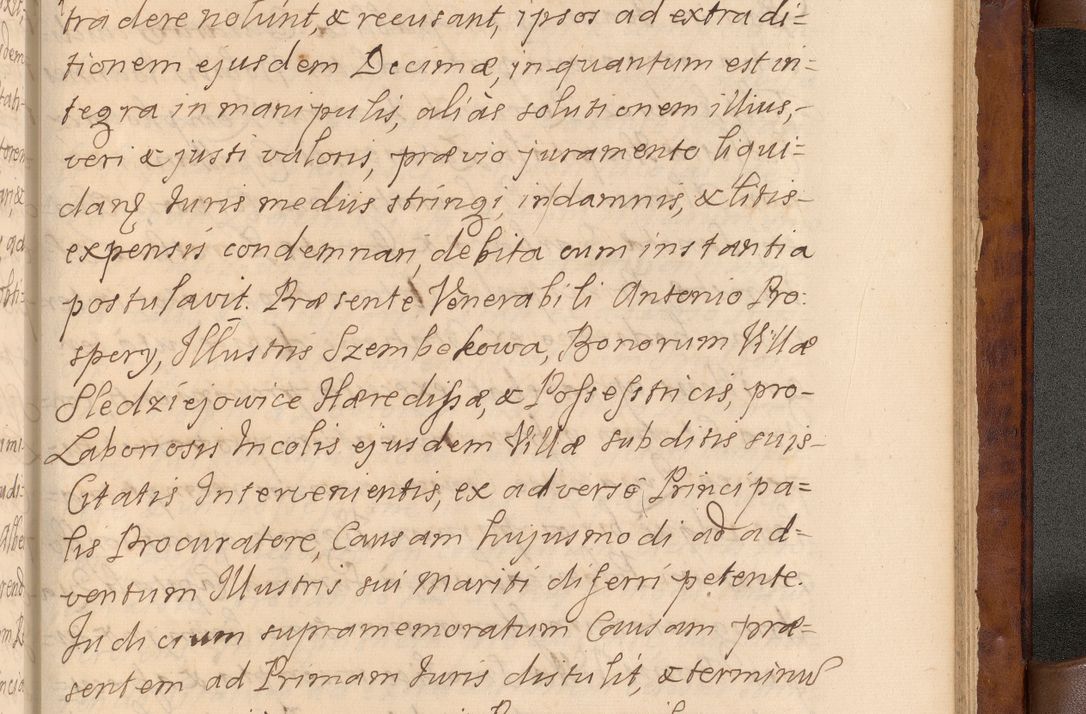 tradere nolunt, & recusant, ipsos ad extradi=
tionem ejusdem Decimæ, in quantum est in=
tegra in manipulis, aliàs solutionem illius,-
veri & justi valoris, prævio juramento liqui=
dan Juris mediis stringi, in damnis, & litis-
expensis condemnari, debita cum instantia
postulavit. Præsente Venerabili Antonio Pro:
spery, Illustris Szembekowa, Bonorum Villæ
Sledziejowice Hæredissæ, & Possessitricis, pro-
Laboriosis Incolis ejusdem Villæ subditis suis-
Citatis Intervenientis, ex adverso Principa=
lis Procuratore, Causam hujusmodi ad ad=
ventum Illustris sui Mariti differri petente.
Judicium supramemoratum Causam præ=
sentem ad Primam Juris distulit, & terminū